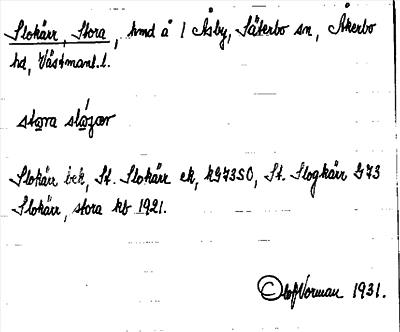 Slokärr, Stora, hmd å 1 Åsby, Säterbo sn, Åkerbo
hd, Västmanl. l.
stora slózær
Slokärr bek, St. Slokärr ek, hG73SO, St. Slogkärr G73
Slokärr, stora kb 1921.
Olof Norman 1931.